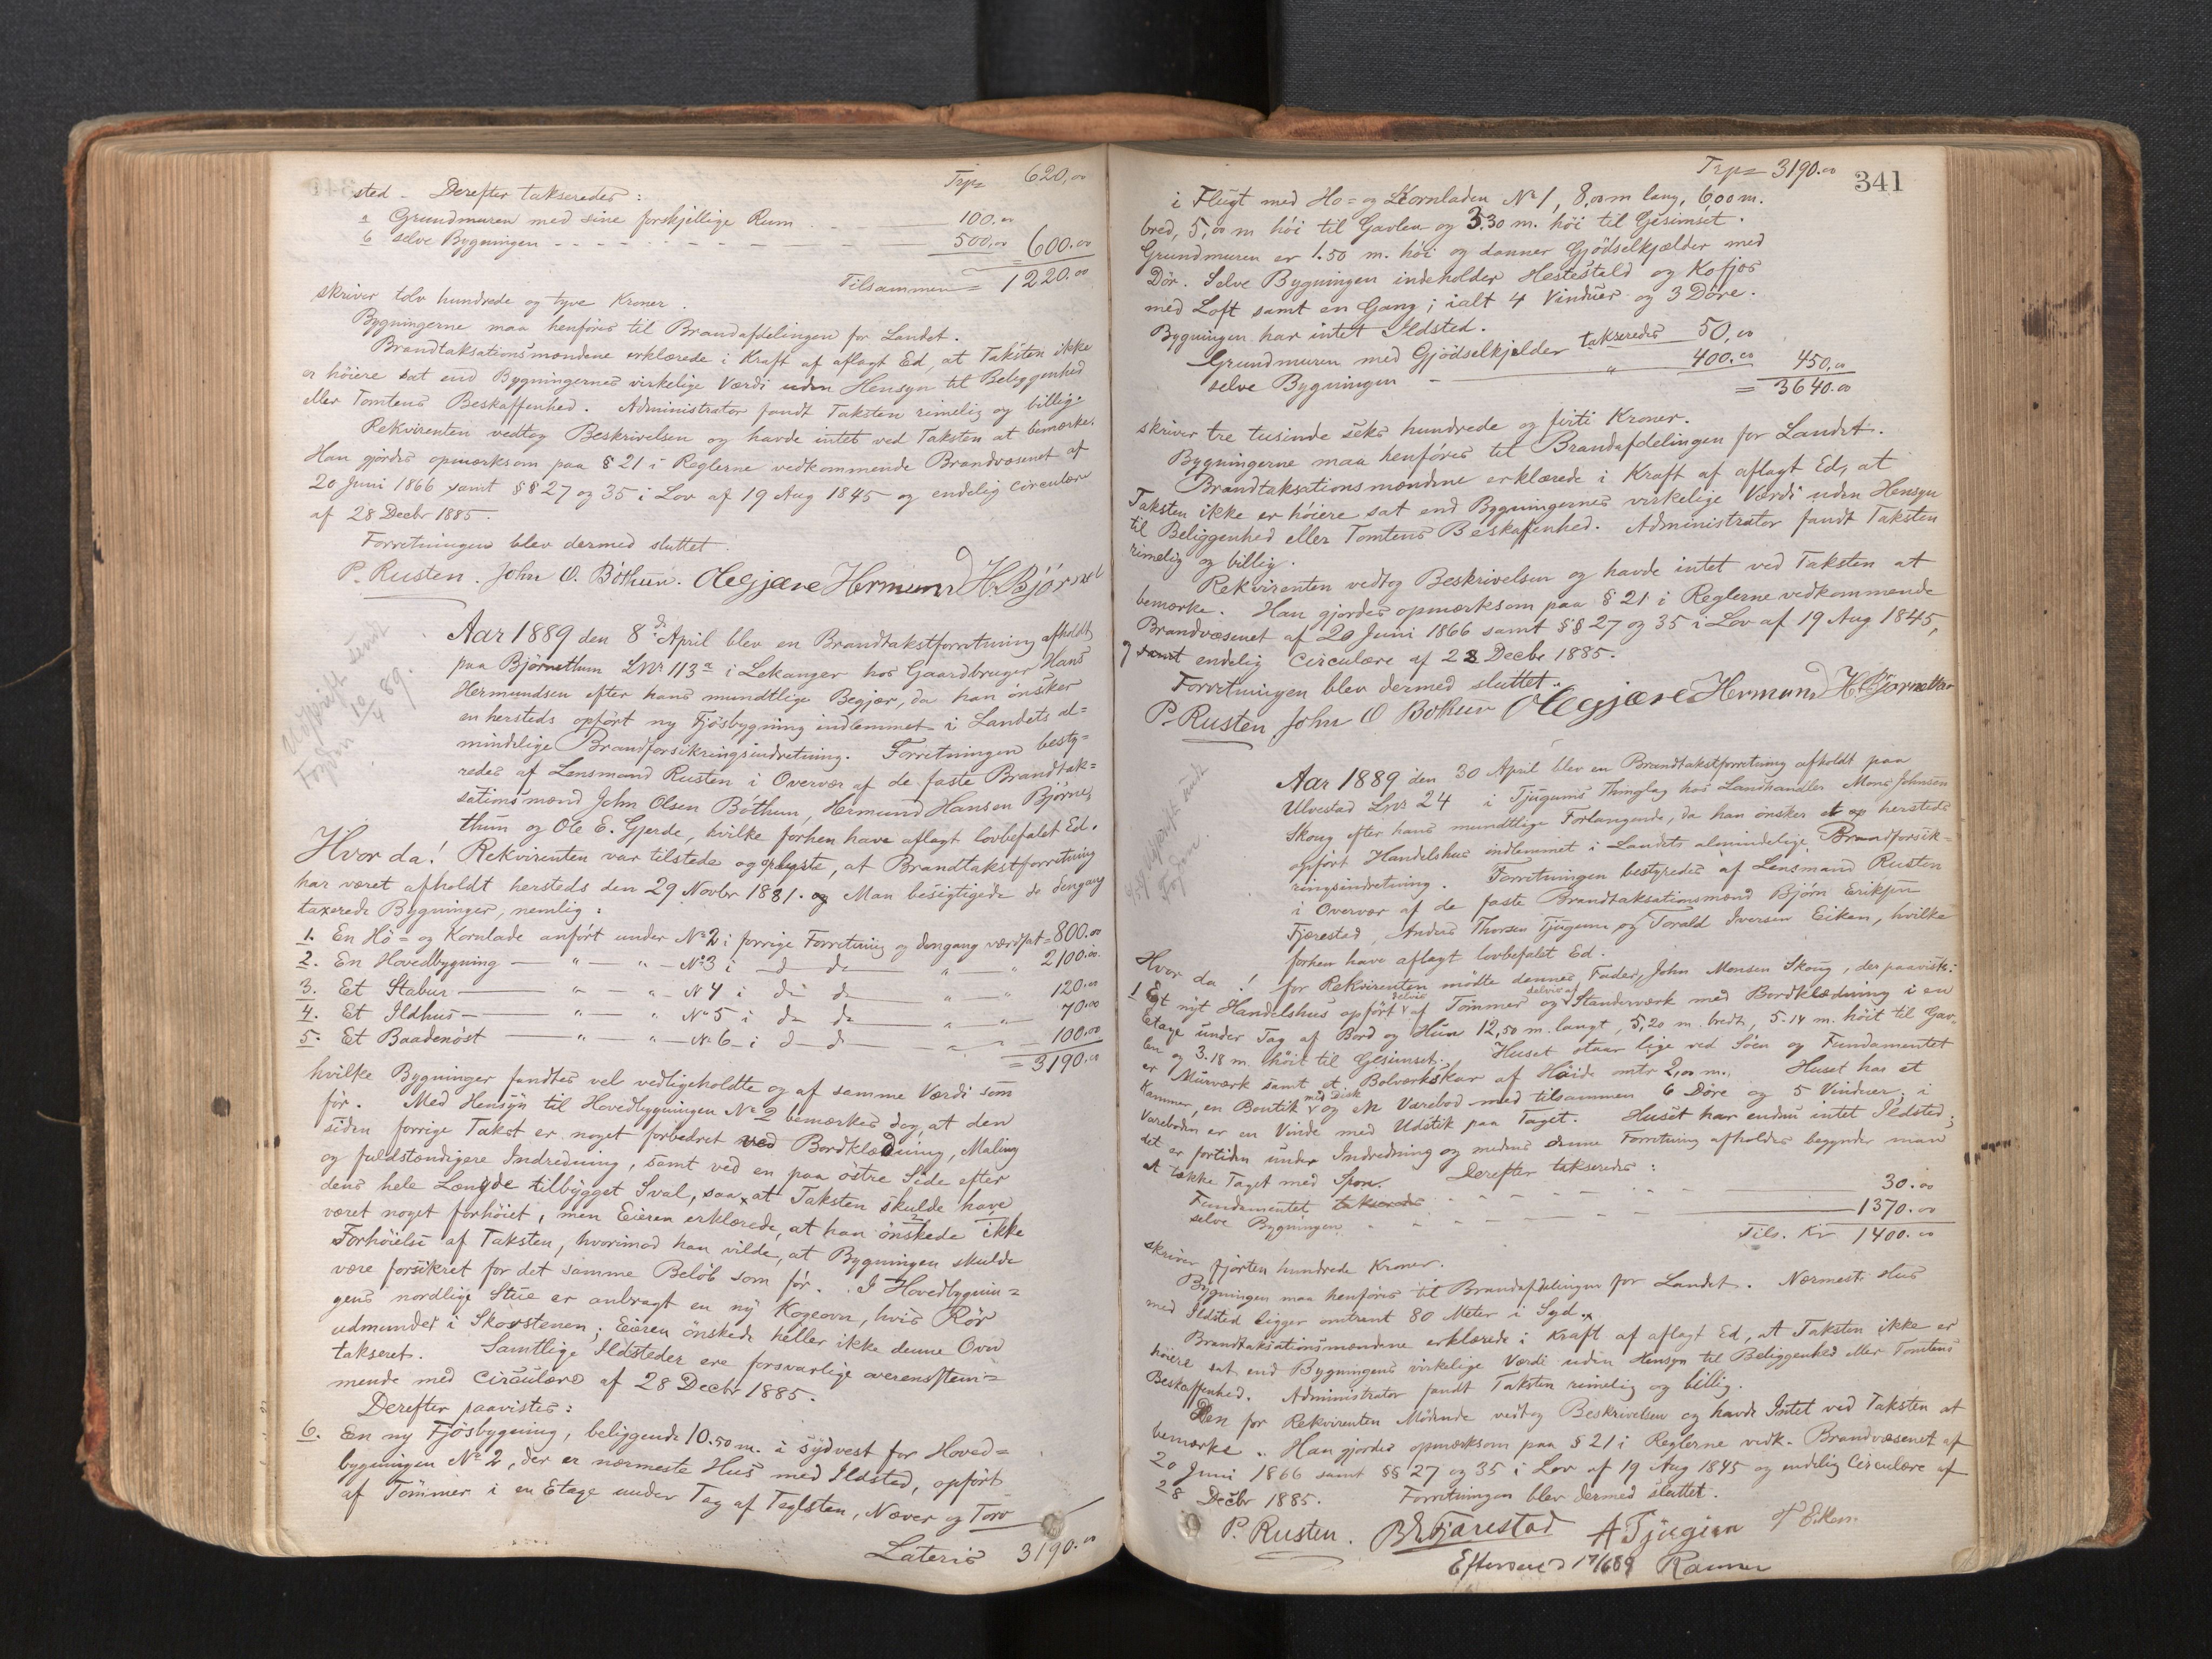 Trp= 620,00
sted - Derefter takseredes:
a Grundmuren med sine forskjellige Rum 100.00
b selve Bygningen 500,00 = 600.00
Tilsammen = 1220.00
skriver tolv hundrede og tyve Kroner.
Bygningerne maa henföres til Brandafdelingen for Landet.
Brandtaksationsmændene erklærede i Kraft af aflagt Ed, at Taksten ikke
er höiere sat end Bygningernes virkelige Værdi uden Hensyn til Beliggenhed
eller Tomtens Beskaffenhed. Administrator fandt Taksten rimelig og billig.
Rekvirenten vedtog Beskrivelsen og havde intet ved Taksten at bemærke.
Han gjordes opmærksom paa § 21 i Reglerne vedkommende Brandvæsenet af
20 Juni 1866 samt §§ 27 og 35 i Lov af 19 Aug 1845 og endelig Circulære
af 28 Decbr 1885.
Forretningen blev dermed sluttet.
P. Rusten. John O. Böthun. OleGjære Hermund H. Björnet
Udskrift sendt
Fogden 10/4 89.
Aar 1889 den 8de April blev en Brandtakstforretning afholdt
paa Björnethun LNr 113a i Lekanger hos Gaardbruger Hans
Hermundsen efter hans mundtlige Begjær, da han önsker
en hersteds opfört ny Fjösbygning indlemmet i Landets al=
mindelige Brandforsikringsindretning. Forretningen besty=
redes af Lensmand Rusten i Overvær af de faste Brandtak=
sationsmænd John Olsen Böthun, Hermund Hansen Björne,
thun og Ole E. Gjerde, hvilke forhen have aflagt lovbefalet Ed.
Hvor da! Rekvirenten var tilstede og oplyste, at Brandtakstforretning
har været afholdt hersteds den 29 Novbr 1881. og Man besigtigede de dengang
taxerede Bygninger, nemlig:
1. En Hö= og Kornlade anfört under No 2 i forrige Forretning og dengang værdsat = 800.00
2. En Hovedbygning — " — " — No 3 i — d — do — " — " 2100.00
3. Et Stabur — " — " — N 4 i do do — " — " 120.00
4. Et Ildhus — " — " No 5 i do do — " — " 70.00
5. Et Baadenöst — " — " — No 6 i d d — " — " 100.00
= 3190.00
hvilke Bygninger fandtes vel vedligeholdte og af samme Værdi som
för. Med Hensyn til Hovedbygningen No 2 bemærkes dog, at den
siden forrige Takst er noget forbedret ved Bordklædning, Maling
og fuldstændigere Indredning, samt ved en paa östre Side efter
dens hele Længde tilbygget Sval, saa at Taksten skulde have
været noget forhöiet, men Eieren erklærede, at han önskede ikke
Forhöielse af Taksten, hvorimod han vilde, at Bygningen skulde
være forsikret for det samme Belöb som för. I Hovedbygnin=
gens nordlige Stue er anbragt en ny Kogeovn, hvis Rör
udmunder i Skorstenen; Eieren önskede heller ikke denne Ovn
takseret. Samtlige Ildsteder ere forsvarlige overensstem=
mende med Circulære af 28 Decbr 1885.
Derefter paavistes:
6. En ny Fjösbygning, beliggende 10.50 m. i sydvest for Hoved=
bygningen No 2, der er nærmeste Hus med Ildsted, opfört
af Tömmer i en Etage under Tag af Teglsten, Næver og Torv
Lateris 3190.00
Trp= 3190.00 341
i Flugt med Hö= og Kornladen No 1, 8,00 m lang, 6,00 m.
bred, 5,00 m höi til Gavlen og 3.30 m. höi til Gesimset.
Grundmuren er 1.50 m. höi og danner Gjödselkjælder med
Dör. Selve Bygningen indeholder Hestestald og Kofjös
med Loft samt en Gang; ialt 4 Vinduer og 3 Döre.
Bygningen har intet Ildsted.
Grundmuren med Gjödselkjælder takseredes 50,00
selve Bygningen — " 400.00 450,00
= 3640.00
skriver tre tusinde seks hundrede og firti Kroner.
Bygningerne maa henföres til Brandafdelingen for Landet.
Brandtaksationsmændene erklærede i Kraft af aflagt Ed, at
Taksten ikke er höiere sat end Bygningernes virkelige Værdi uden Hensyn
til Beliggenhed eller Tomtens Beskaffenhed. Administrator fandt Taksten
rimelig og billig.
Rekvirenten vedtog Beskrivelsen og havde intet ved Taksten at
bemærke. Han gjordes opmærksom paa § 21 i Reglerne vedkommende
Brandvæsenet af 20 Juni 1866 samt §§ 27 og 35 i Lov af 19 Aug 1845,
og samt endelig Circulære af 28 Decbr 1885.
Forretningen blev dermed sluttet.
P. Rusten John O Böthun OleGjære Hermund H. Björnethun
Udskrift sendt
Fogden
Aar 1889 den 30 April blev en Brandtakstforretning afholdt paa
Ulvestad LNr 24 i Tjugums Thinglag hos Landhandler Mons Johnsen
Skoug efter hans mundtlige Forlangende, da han önsker et op hersteds
opfört Handelshus indlemmet i Landets almindelige Brandforsik=
ringsindretning. Forretningen bestyredes af Lensmand Rusten
i Overvær af de faste Brandtaksationsmænd Björn Eriksen
Fjærestad, Anders Thorsen Tjugum og Torald Iversen Eiken, hvilke
forhen have aflagt lovbefalet Ed.
Hvor da! for Rekvirenten mödte dennes Fader, John Monsen Skoug, der paaviste:
1 Et nyt Handelshus opfört delvis af Tömmer og delvis af Standerværk med Bordklædning i en
Etage under Tag af Bord og Hun 12,50 m. langt, 5,20 m. bredt, 5.14 m. höit til Gav=
len og 3.18 m. höit til Gesimset. Huset staar lige ved Söen og Fundamentet
er Murværk samt et Bolværkskar af Höide omtr 2,00 m. Huset har et
Kammer, en Boutik med Disk og en Varebod med tilsammen 6 Döre og 5 Vinduer; i
Vareboden er en Vinde med Udstik paa Taget. Huset har endnu intet Ildsted;
det er fortiden under Indredning og medens denne Forretning afholdes begynder man
at tække Taget med Spon. Derefter takseredes:
Fundamentet takseredes 30.00
selve Bygningen 1370.00
Tils. Kr 1400.00
skriver fjorten hundrede Kroner.
Bygningen maa henföres til Brandafdelingen for Landet. Nærmeste Hus
med Ildsted ligger omtrent 80 Meter i Syd.
Brandtaksationsmændene erklærede i Kraft af aflagt Ed, at Taksten ikke er
höiere sat end Bygningens virkelige Værdi uden Hensyn til Beliggenhed eller Tomtens
Beskaffenhed. Administrator fandt Taksten rimelig og billig.
Den for Rekvirenten Mödende vedtog Beskrivelsen og havde Intet ved Taksten at
bemærke. Han gjordes opmærksom paa § 21 i Reglerne vedk. Brandvæsenet af
20 Juni 1866 samt §§ 27 og 35 i Lov af 19 Aug 1845 og endelig Circulære af
28 Decbr 1885. Forretningen blev dermed sluttet.
P. Rusten. BEFjærestad ATjugum T Eiken
Efterseet 17/6 89 Ranner